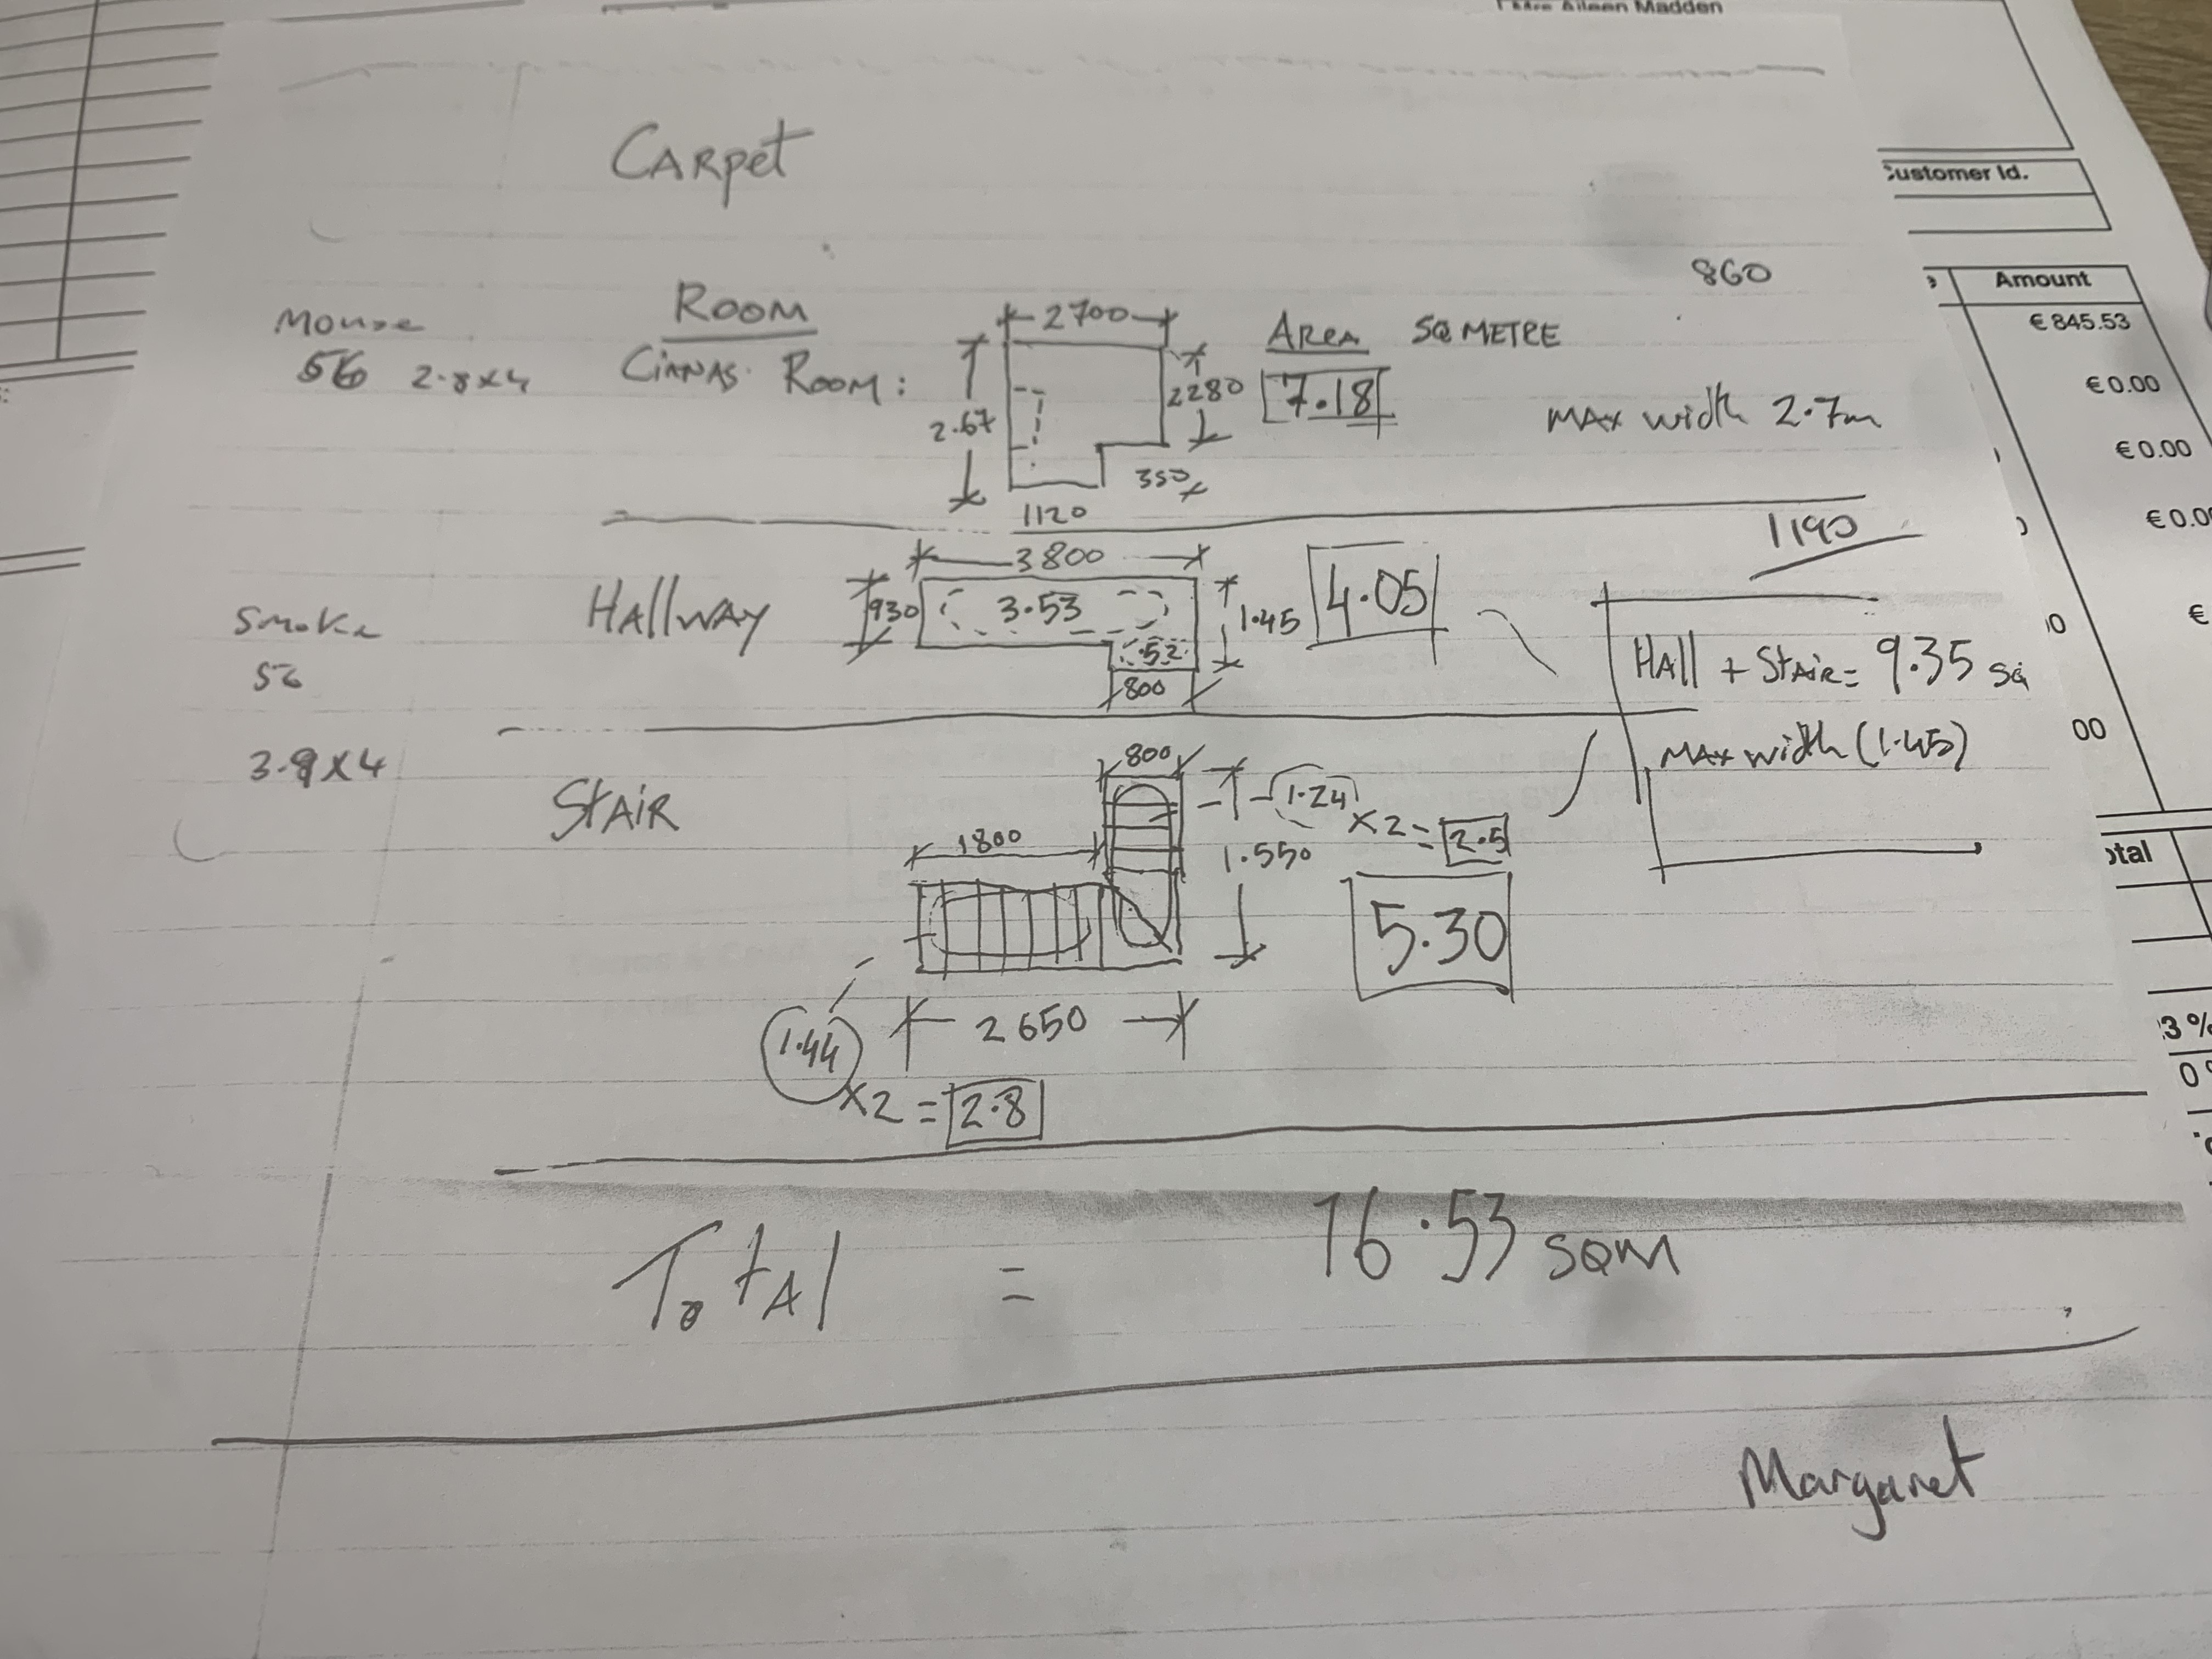 Mrs Aileen Madden
Customer Id.
Amount
€ 845.53
€ 0.00
€ 0.00
€
00
otal
3 %
CARpet
860
Mouse
56 2.8x4
ROOM
CiANAS. ROOM:
2700
2.67
2280
350
1120
AREA SQ METRE
7.18
MAx width 2.7m
1190
Smoke
56
3.9x4
HAllWAY
3800
930
3.53
.52
1.45
800
4.05
HAll + StAiR = 9.35 SQ
MAx width (1.45)
StAiR
800
1800
1.24 x2 = 2.5
1.550
5.30
2650
1.44 x2 = 2.8
TotAl = 16.53 SQM
Margaret